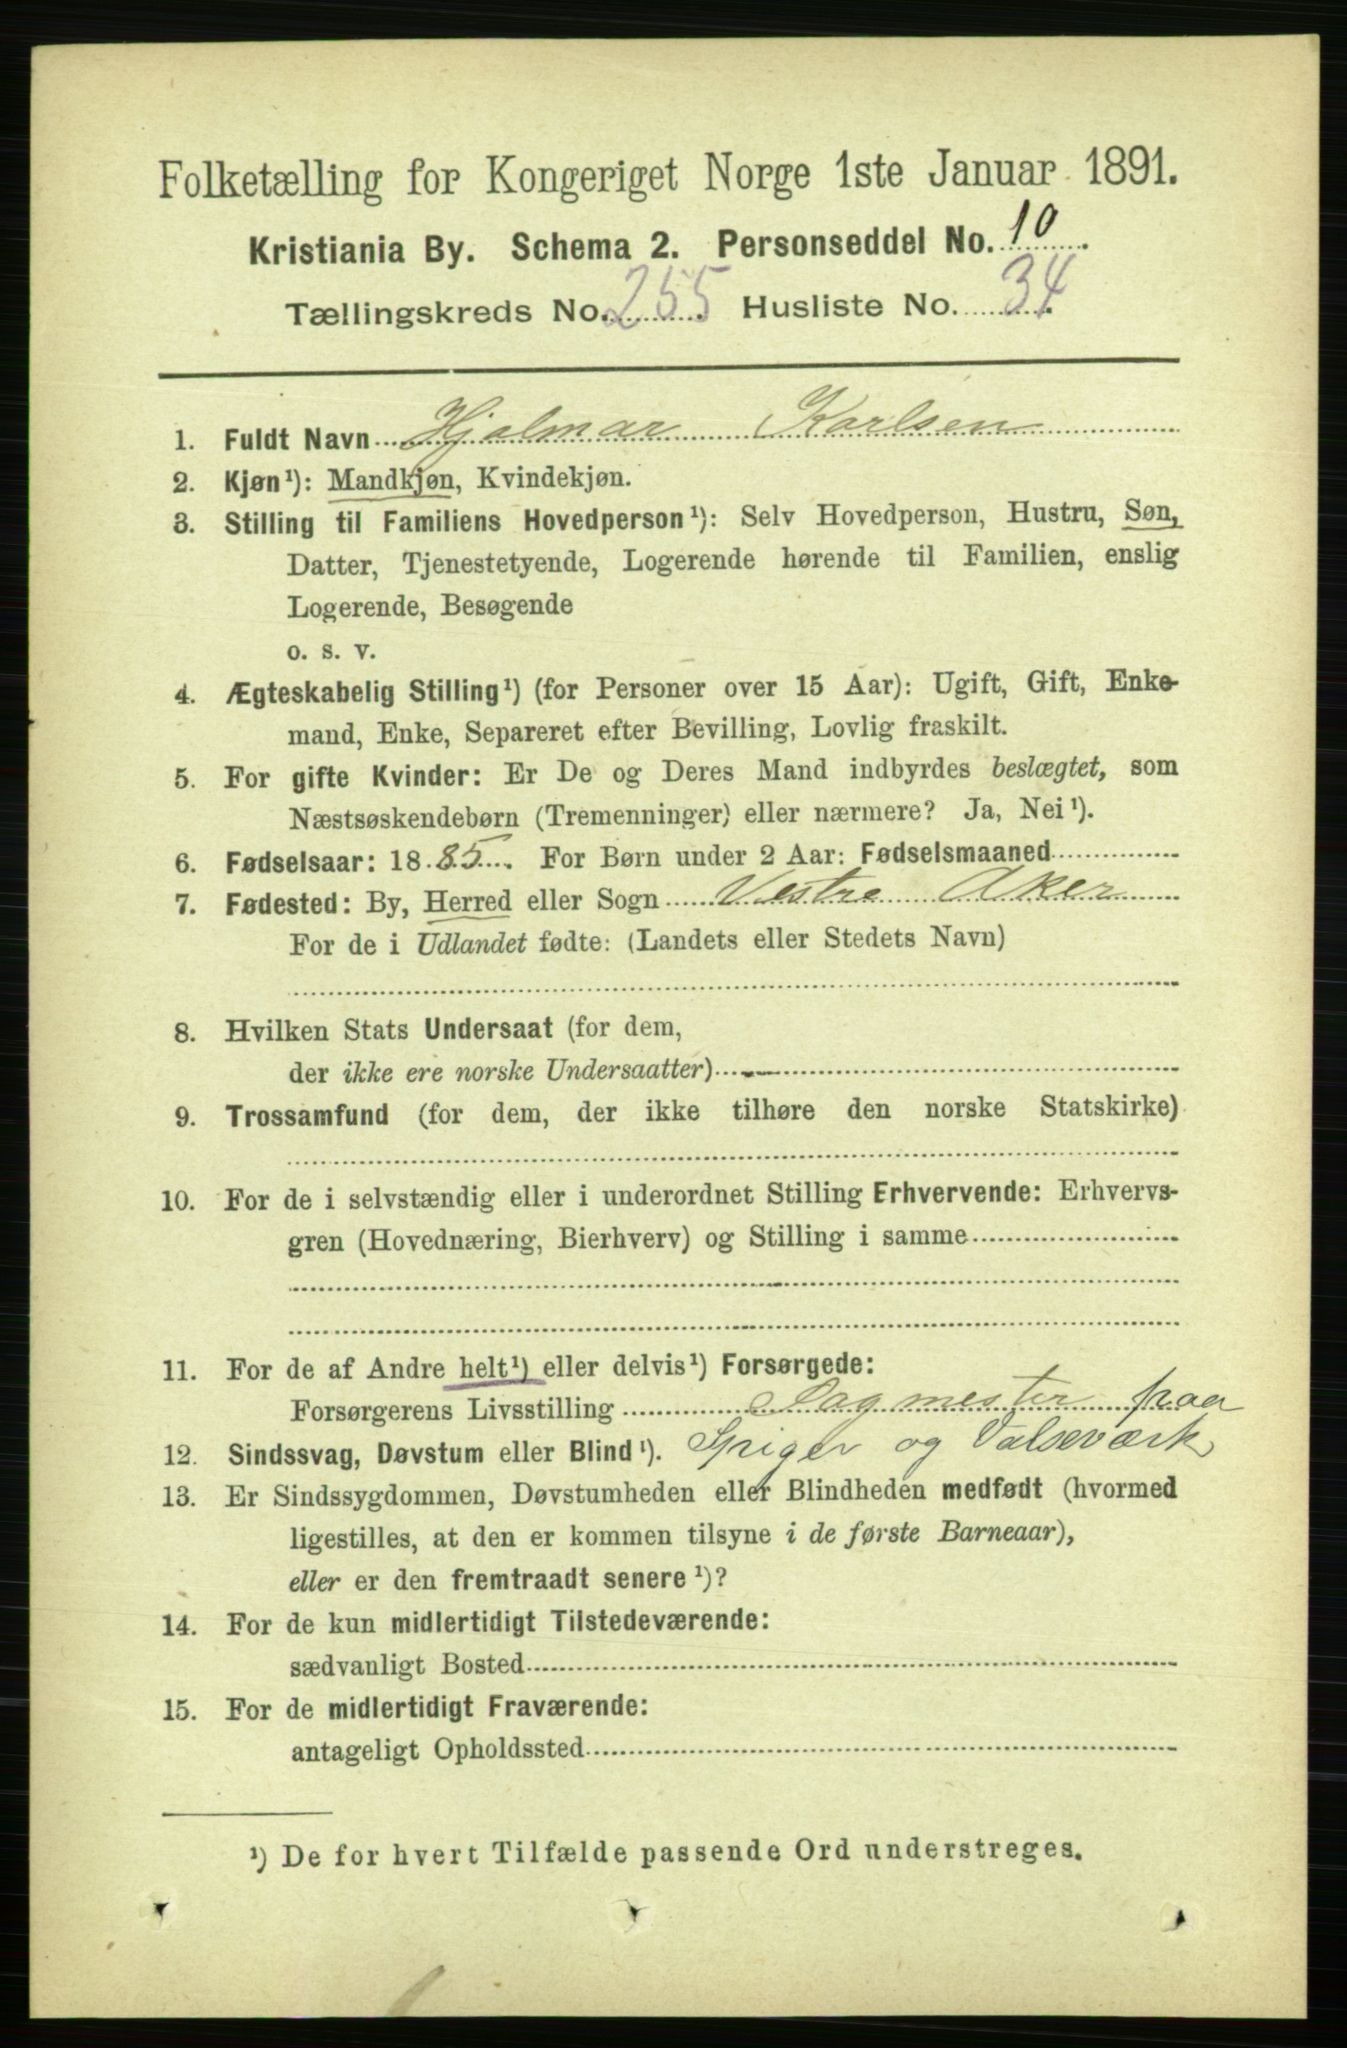 Folketælling for Kongeriget Norge 1ste Januar 1891.
Kristiania By. Schema 2. Personseddel No. 10.
Tællingskreds No. 255. Husliste No. 34.
1. Fuldt Navn Hjalmar Karlsen
2. Kjøn¹): Mandkjøn, Kvindekjøn.
3. Stilling til Familiens Hovedperson¹): Selv Hovedperson, Hustru, Søn,
Datter, Tjenestetyende, Logerende hørende til Familien, enslig
Logerende, Besøgende
o. s. v.
4. Ægteskabelig Stilling¹) (for Personer over 15 Aar): Ugift, Gift, Enke-
mand, Enke, Separeret efter Bevilling, Lovlig fraskilt.
5. For gifte Kvinder: Er De og Deres Mand indbyrdes beslægtet, som
Næstsøskendebørn (Tremenninger) eller nærmere? Ja, Nei¹).
6. Fødselsaar: 1885. For Børn under 2 Aar: Fødselsmaaned
7. Fødested: By, Herred eller Sogn Vestre Aker
For de i Udlandet fødte: (Landets eller Stedets Navn)
8. Hvilken Stats Undersaat (for dem,
der ikke ere norske Undersaatter)
9. Trossamfund (for dem, der ikke tilhøre den norske Statskirke)
10. For de i selvstændig eller i underordnet Stilling Erhvervende: Erhvervs-
gren (Hovednæring, Bierhverv) og Stilling i samme
11. For de af Andre helt¹) eller delvis¹) Forsørgede:
Forsørgerens Livsstilling Dagmester paa
12. Sindssvag, Døvstum eller Blind¹). Spiger og Valseværk
13. Er Sindssygdommen, Døvstumheden eller Blindheden medfødt (hvormed
ligestilles, at den er kommen tilsyne i de første Barneaar),
eller er den fremtraadt senere¹)?
14. For de kun midlertidigt Tilstedeværende:
sædvanligt Bosted
15. For de midlertidigt Fraværende:
antageligt Opholdssted
¹) De for hvert Tilfælde passende Ord understreges.